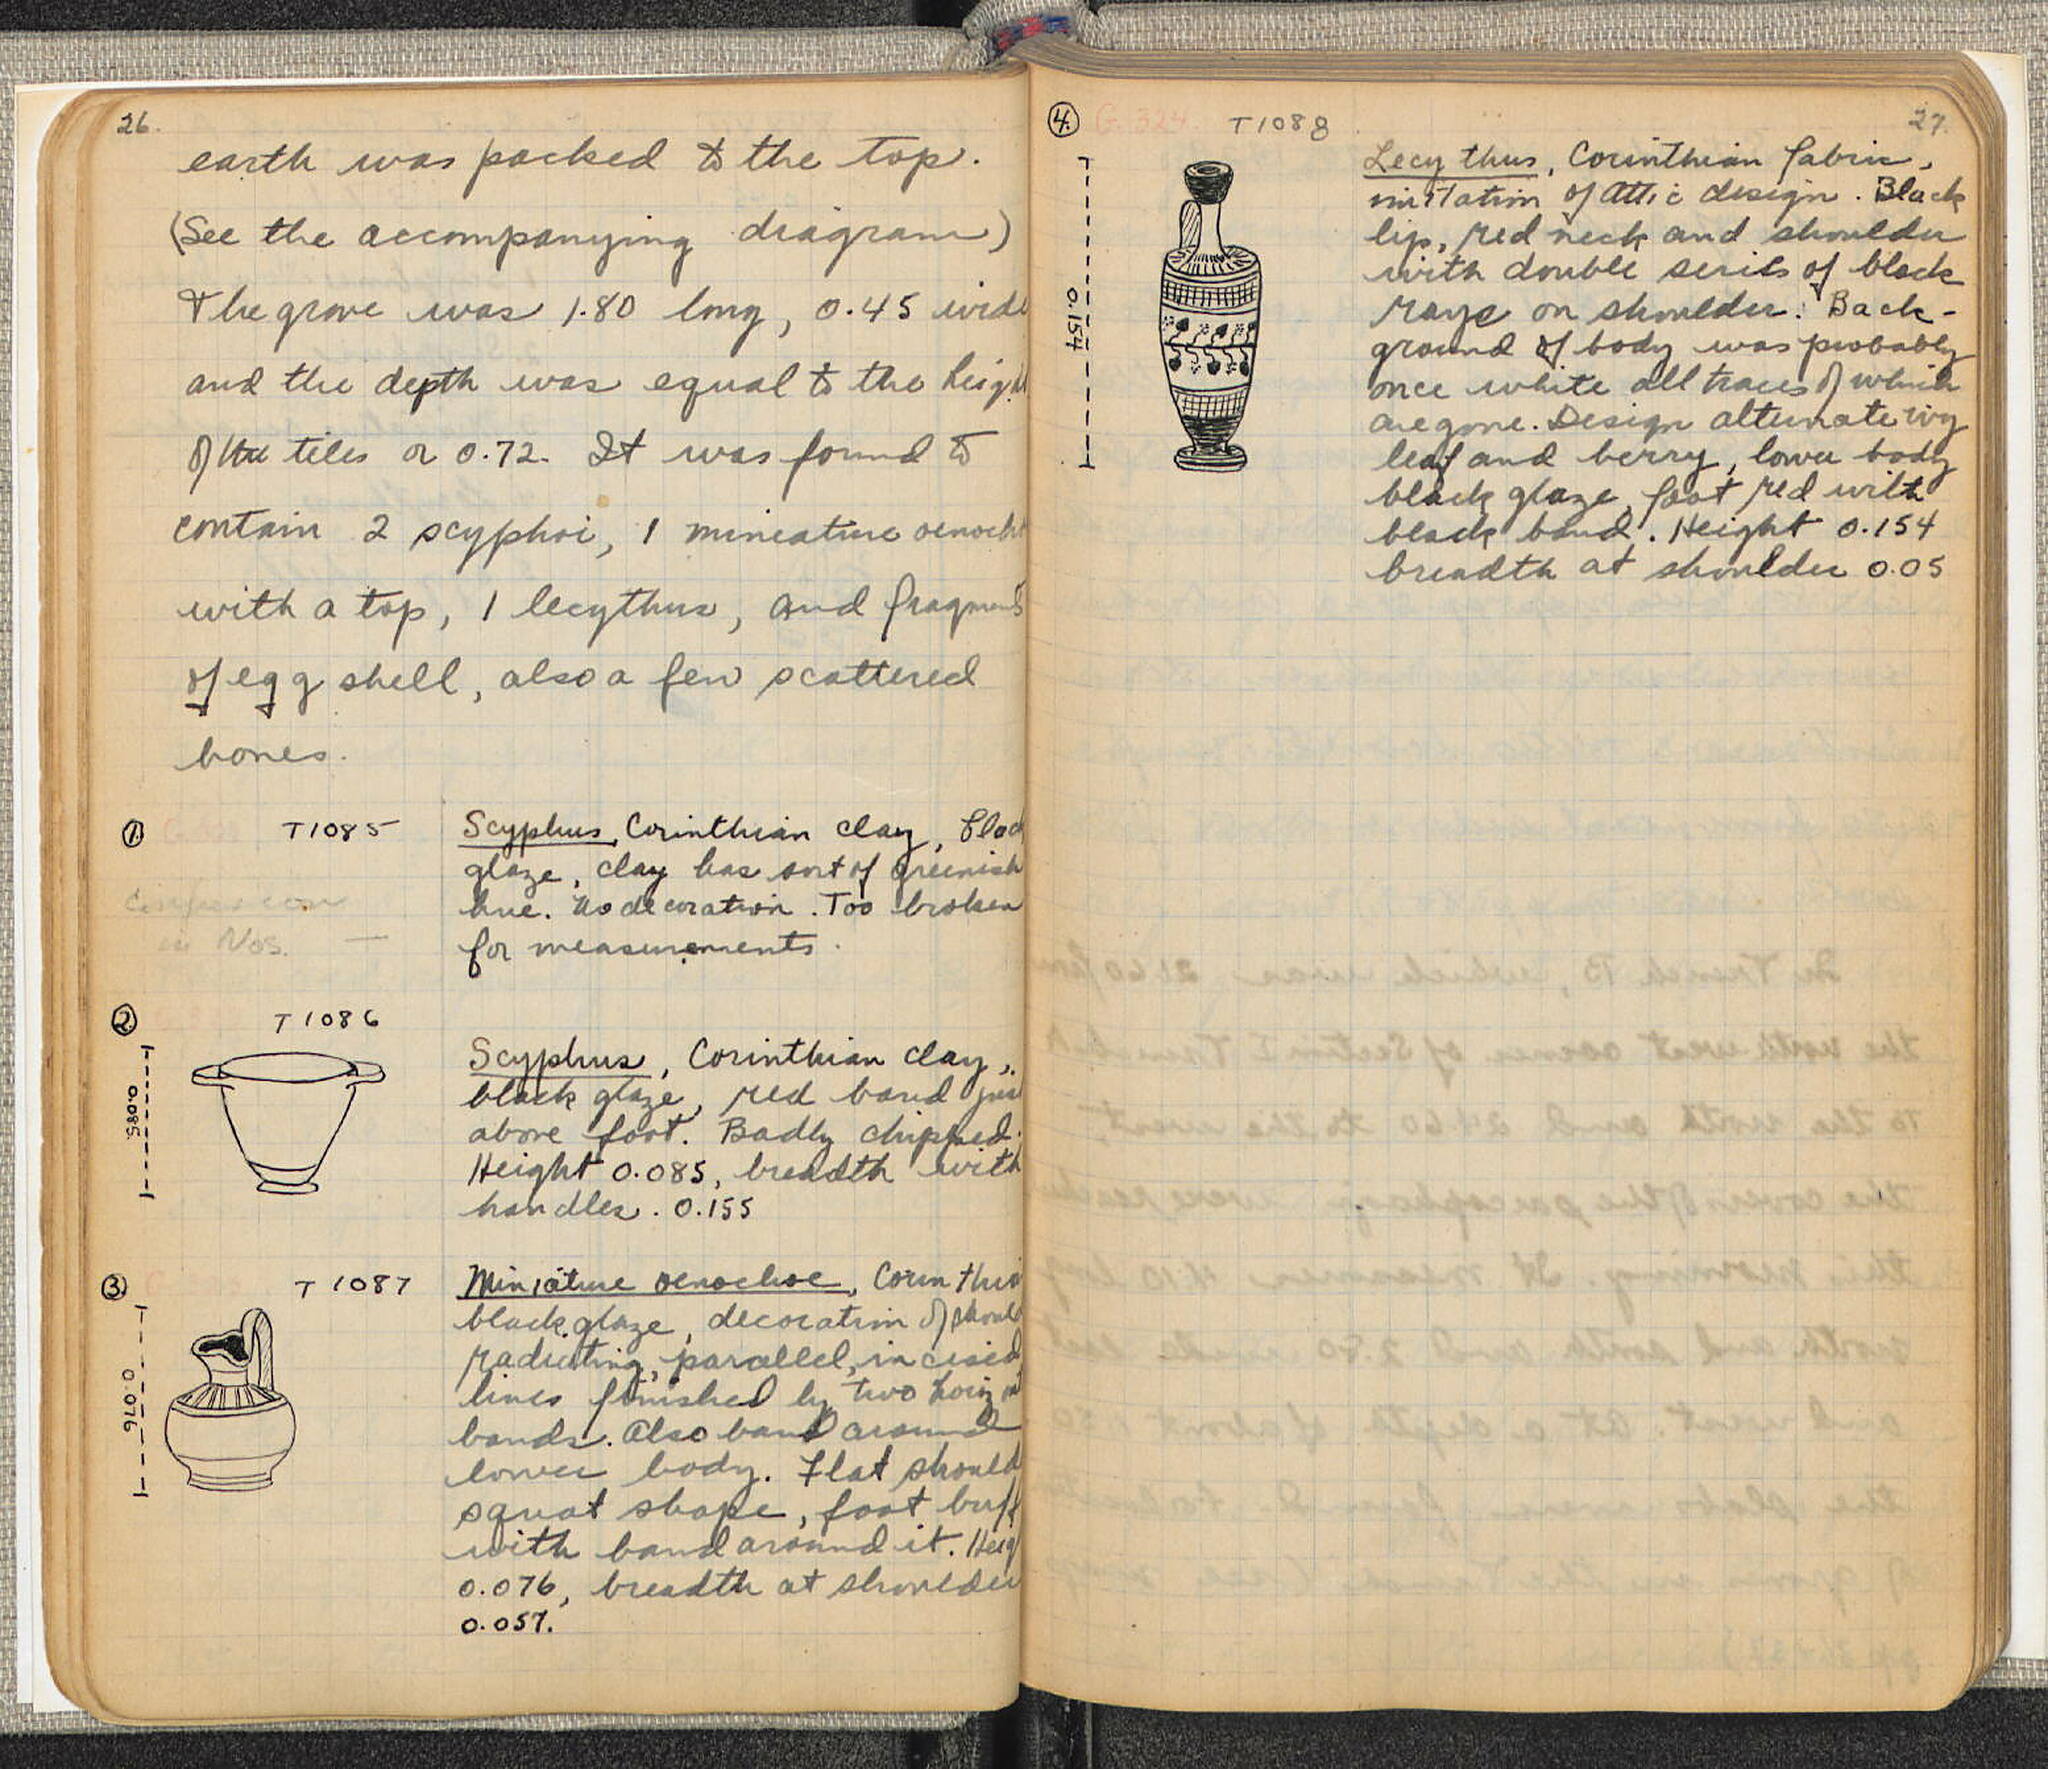 26.
earth was packed to the top.
(See the accompanying diagram)
The grave was 1.80 long, 0.45 wide
and the depth was equal to the height
of the tiles or 0.72. It was found to
contain 2 scyphoi, 1 mineature oenoch
with a top, 1 lecythus, and fragments
of egg shell, also a few scattered
bones.
1. T1085
Scyphus, Corinthian clay, black
glaze, clay has sort of greenish
hue. No decoration. Too broken
for measurements.
in Nos. —
2. T1086
0.085
Scyphus, Corinthian clay,
black glaze, red band jus
above foot. Badly chipped.
Height 0.085, breadth with
handles. 0.155
3. G T1087
0.076
Miniature oenochoe, Corinthia
black glaze, decoration of should
radiating, parallel, incised
lines finished by two horizont
bands. Also band around
lower body. Flat should
squat shape, foot buff
with band around it. Heig
0.076, breadth at shoulder
0.057.
4. G. 324. T1088
27.
0.154
Lecythus, Corinthian fabric,
imitation of Attic design. Black
lip, red neck and shoulder
with double series of black
rays on shoulder. Back-
ground of body was probably
once white all traces of which
are gone. Design alternate ivy
leaf and berry, lower body
black glaze, foot red with
black band. Height 0.154
breadth at shoulder 0.05